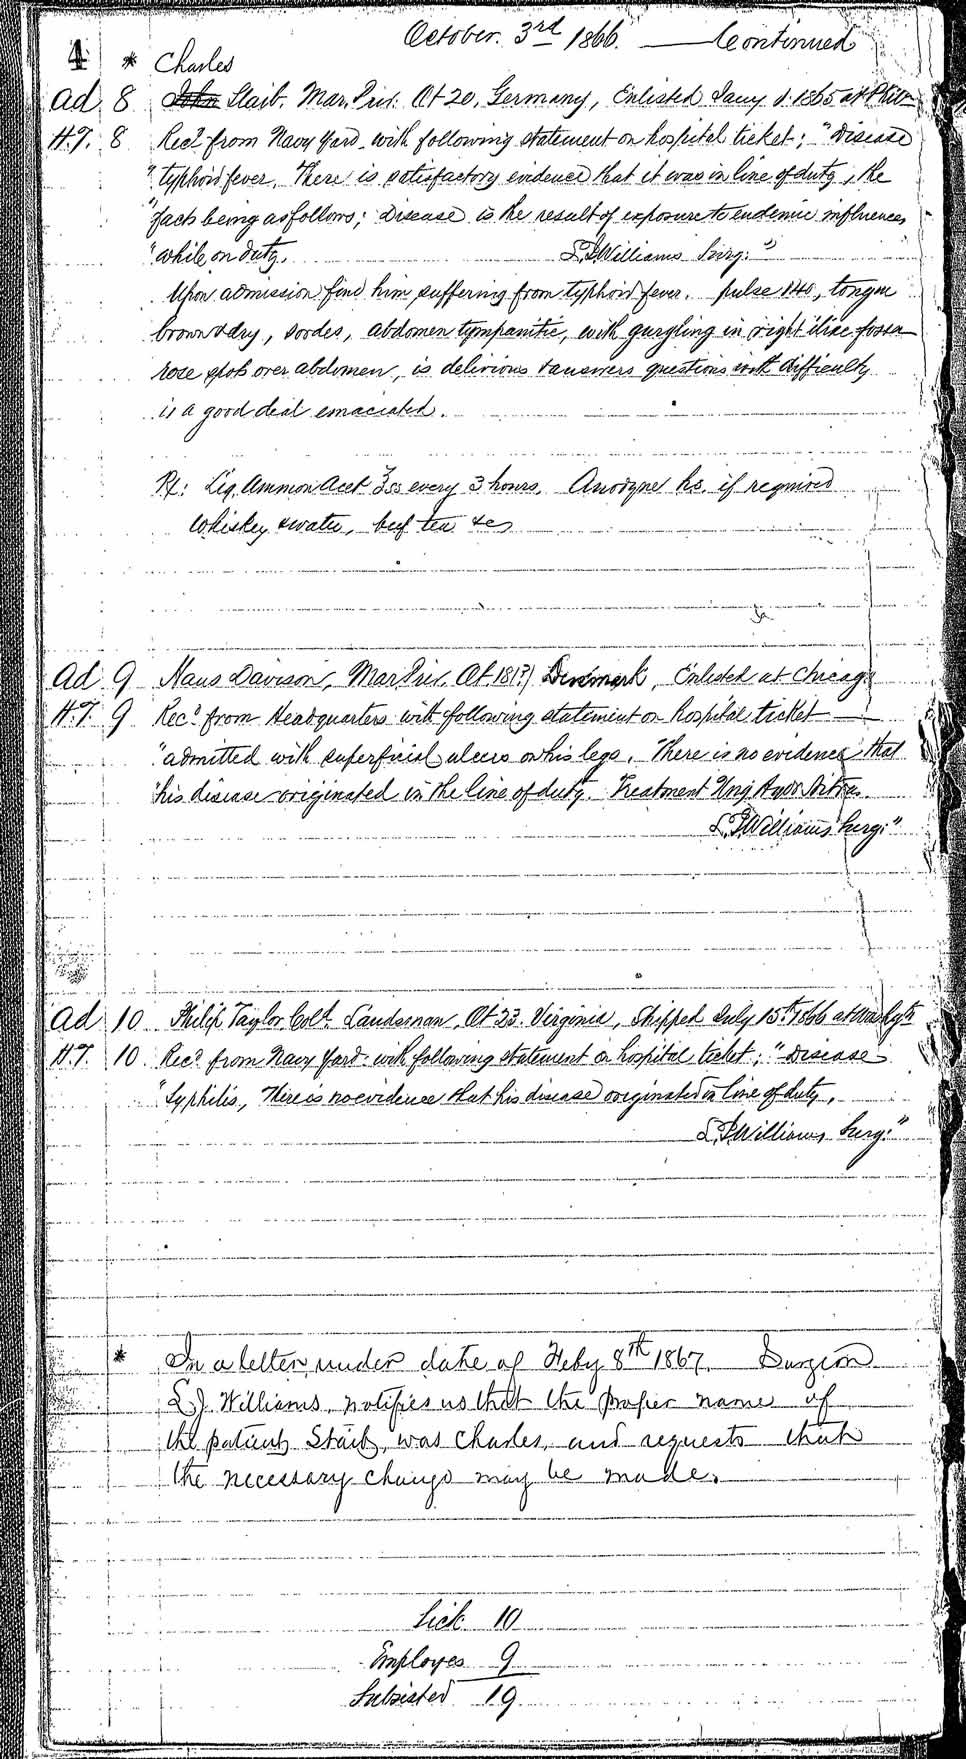 October. 3rd 1866. Continued
4 * Charles
Ad 8 John Staib. Mar. Priv. Æt 20. Germany, Enlisted Jany 1865 at Phil
H.T. 8 Recd from Navy Yard with following statement on hospital ticket; "Disease
"typhoid fever. There is satisfactory evidence that it was in line of duty, the
"facts being as follows; Disease is the result of exposure to endemic influences
"while on duty. L. J. Williams Surg:"
Upon admission find him suffering from typhoid fever. pulse 140, tongue
brown & dry, sordes, abdomen tympanitic, with gurgling in right iliac fossa
rose spots over abdomen, is delirious & answers questions with difficulty
is a good deal emaciated.
Rx: Liq. Ammon Acet ℥ss every 3 hours. Anodyne h.s. if required
Whiskey & water, beef tea &c
Ad 9 Hans Davison, Mar. Priv. Æt 18(?) Denmark, Enlisted at Chicago
H.T. 9 Recd from Headquarters with following statement on hospital ticket
"admitted with superficial ulcers on his legs. There is no evidence that
"his disease originated in the line of duty. Treatment Ung
L. J. Williams Surg:"
Ad 10 Philip Taylor Cold. Landsman, Æt 23. Virginia, Shipped July 15th 1866 at Washgtn
H.T. 10 Recd from Navy Yard with following statement on hospital ticket; "Disease
"Syphilis, There is no evidence that his disease originated in line of duty.
L. J. Williams Surg:"
* In a letter under date of Feby 8th 1867. Surgeon
L. J. Williams, notifies us that the proper name of
the patient Staib, was Charles, and requests that
the necessary change may be made.
Sick 10
Employes 9
Subsisted 19